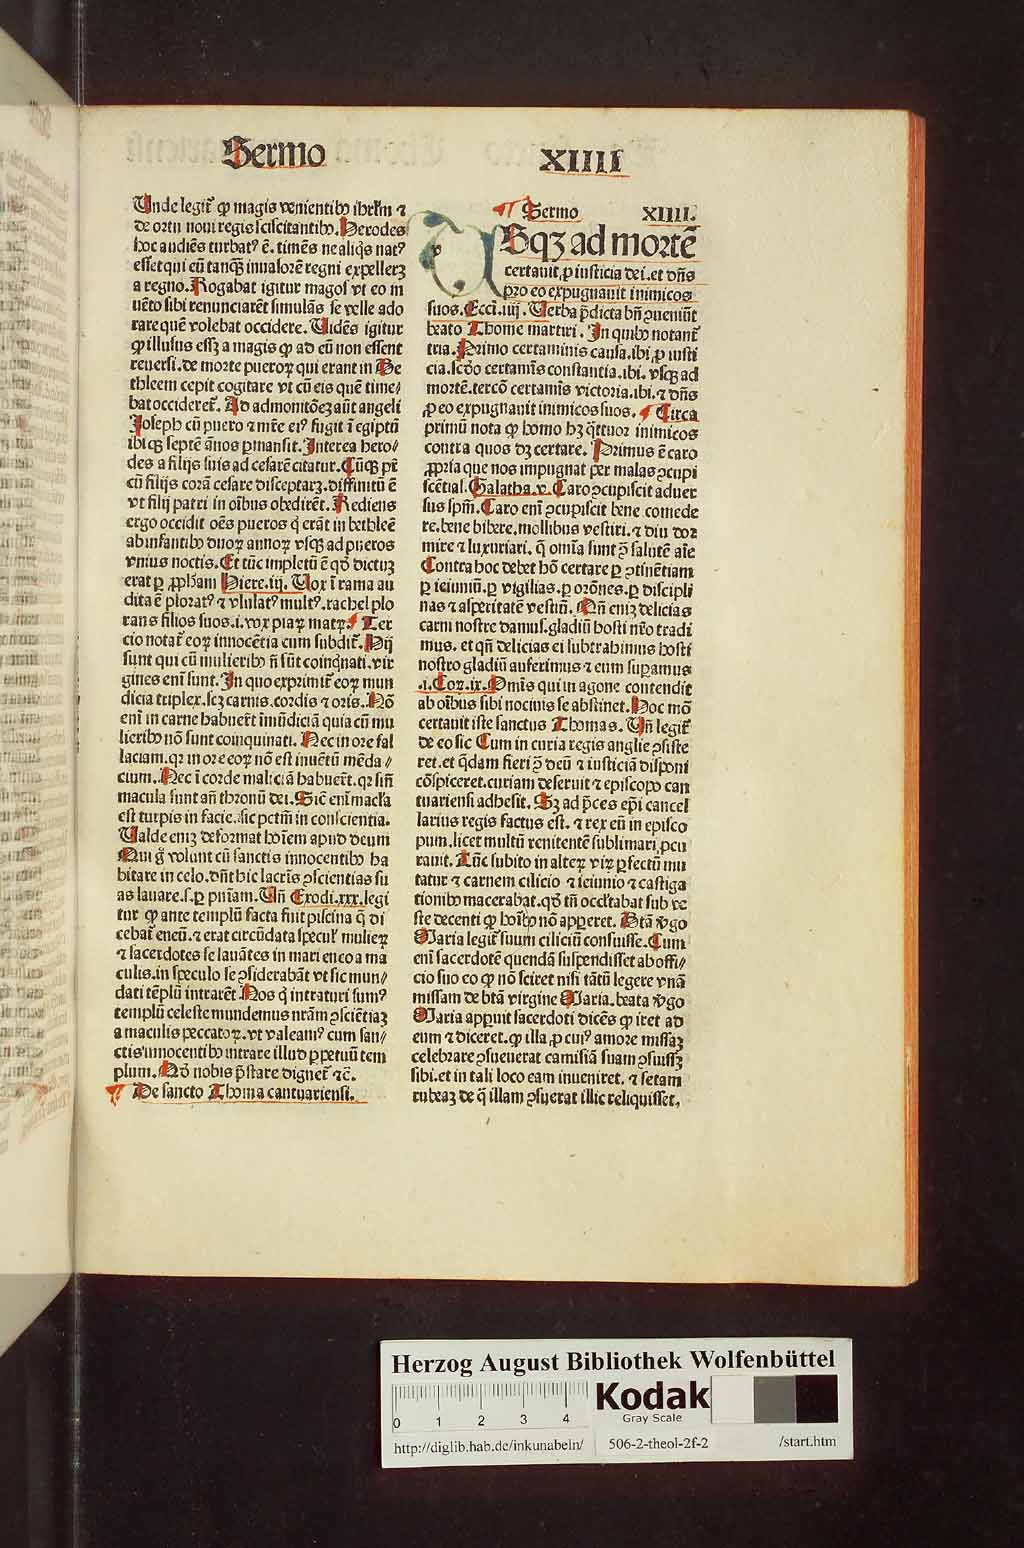 Sermo
XIIII
Unde legit᷑ ꝙ magis venientibꝰ ihrl'm ⁊
de ortu noui regis sciscitantibꝰ. Herodes
hoc audiẽs turbatꝰ ẽ. timẽs ne aliqͥs natꝰ
esset qui eũ tanqͣȝ inuasorẽ regni expelleret
a regno. Rogabat igitur magos vt eo in
uẽto sibi renunciarẽt simulãs se velle ado
rare quẽ volebat occidere. Uidẽs igitur
ꝙ illusus essȝ a magis ꝙ ad eũ non essent
reuersi. de morte pueroꝝ qui erant in Be
thleem cepit cogitare vt cũ eis quẽ time-
bat occideret. Ad admonitõeȝ aũt angeli
Joseph cũ puero ⁊ mr̃e eiꝰ fugit ĩ egiptũ
ibiqȝ septẽ ãnos ꝑmansit. Interea hero-
des a filijs suis ad cesarẽ citatur. Cũqȝ pr̃
cũ filijs corã cesare disceptaꝝ. diffinitũ ẽ
vt filij patri in oĩbus obedirẽt. Rediens
ergo occidit oẽs pueros qͥ erãt in bethleẽ
ab infantibꝰ duoꝝ annoꝝ vsqȝ ad pueros
vnius noctis. Et tũc impletũ ẽ qð dictuȝ
erat ꝑ ꝓpham Hiere. iij. Uox ĩ rama au
dita ẽ ploratꝰ ⁊ vlulatꝰ multꝰ. rachel plo
rans filios suos. i. vox piaꝝ matꝝ. Ter
cio notat᷑ eoꝝ innocẽtia cum subdit᷑. Hij
sunt qui cũ mulieribꝰ nõ sũt coinqͥnati. vir
gines enĩ sunt. In quo exprimit᷑ eoꝝ mun
dicia triplex. scȝ carnis. cordis ⁊ oris. Nõ
enĩ in carne habuer̃t ĩmũdiciã quia cũ mu
lieribꝰ nõ sunt coinquinati. Nec in ore fal
laciam. qꝛ in ore eoꝝ nõ est inuẽtũ mẽda-
cium. Nec ĩ corde maliciã habuer̃t. qꝛ sin̄
macula sunt an̄ thronũ dei. Sic enĩ macl'a
est turpis in facie. sic pctm̃ in conscientia.
Ualde eniȝ deformat hoĩem apud deum
Qui gͦ volunt cũ sanctis innocentibꝰ ha
bitare in celo. dñt hic lacrĩs ꝯscientias su
as lauare. s. ꝑ pnĩam. Uñ Exodi. xxx. legi
tur ꝙ ante templũ facta fuit piscina q̃ di
cebat᷑ eneũ. ⁊ erat circũdata specul' mulieꝝ
⁊ sacerdotes se lauãtes in mari eneo a ma
culis. in speculo se ꝯsiderabãt vt sic mun-
dati tẽplũ intrarẽt. Nos qͥ intraturi sumꝰ
templũ celeste mundemus nrãm ꝯsciẽtiaȝ
a maculis peccatoꝝ. vt valeamꝰ cum san-
ctis innocentibꝰ intrare illud ꝑpetuũ tem
plum. Qð nobis p̃stare dignet᷑ ⁊c̃.
¶ De sancto Thoma cantuariensi.
¶ Sermo XIIII.
USqȝ ad mortẽ
certauit, ꝓ iusticia dei. et dñs
pro eo expugnauit inimicos
suos. Ecci. iiij. Uerba p̃dicta bñ ꝯueniũt
beato Thome martiri. In quibꝰ notant᷑
tria. Primo certaminis causa. ibi, ꝓ iusti
cia. scðo certamĩs constantia. ibi. vsqȝ ad
mortẽ. tercõ certamĩs victoria. ibi. ⁊ dñs
ꝓ eo expugnauit inimicos suos. ¶ Circa
primũ nota ꝙ homo hȝ qͣttuor inimicos
contra quos dȝ certare. Primus ẽ caro
ꝓpria que nos impugnat per malas ꝯcupi
scẽtias. Galatha. v. Caro ꝯcupiscit aduer
sus spm̃. Caro enĩ ꝯcupiscit bene comede
re. bene bibere. mollibus vestiri. ⁊ diu dor
mire ⁊ luxuriari. q̃ omĩa sunt ꝯ̃ salutẽ aĩe
Contra hoc debet hõ certare ꝑ ꝯtinẽtiam
ꝑ ieiuniũ. ꝑ vigilias. ꝑ orõnes. ꝑ discipli
nas ⁊ asperitatẽ vestiũ. Qñ eniȝ delicias
carni nostre damus. gladiũ hosti nr̃o tradi
mus. et qñ delicias ei subtrahimus hosti
nostro gladiũ auferimus ⁊ eum suꝑamus
.i. Coꝝ. ix. Omĩs qui in agone contendit
ab oĩbus sibi nociuis se abstinet. Hoc mõ
certauit iste sanctus Thomas. Uñ legit᷑
de eo sic Cum in curia regis anglie ꝯsiste
ret. et q̃dam fieri ꝯ̃ deũ ⁊ iusticiã disponi
cõspiceret. curiam deseruit ⁊ episcopo can
tuariensi adhesit. Sȝ ad p̃ces ep̃i cancel
larius regis factus est. ⁊ rex eũ in episco
pum. licet multũ renitentẽ sublimari, pcu
rauit. Tũc subito in alteꝝ viꝝ ꝑfectũ mu
tatur ⁊ carnem cilicio ⁊ ieiunio ⁊ castiga
tionibꝰ macerabat. qð tñ occl'tabat sub ve
ste decenti ꝙ hoĩbꝰ nõ apperet. Btã ꝟgo
Maria legit᷑ suum ciliciũ consuisse. Cum
enĩ sacerdotẽ quendã suspendisset ab offi-
cio suo eo ꝙ nõ sciret nisi tãtũ legere vnã
missam de btã virgine Maria. beata ꝟgo
Maria apparuit sacerdoti dicẽs ꝙ iret ad
eum ⁊ diceret. ꝙ illa, ꝓ cuiꝰ amore missaȝ
celebrare ꝯsueuerat camisiã suam ꝯsuissȝ
sibi. et in tali loco eam inueniret. ⁊ setam
rubeaȝ de q̃ illam ꝯsuerat illic reliquisset,
Herzog August Bibliothek Wolfenbüttel
Kodak
Gray Scale
0 1 2 3 4
http://diglib.hab.de/inkunabeln/ 506-2-theol-2f-2 /start.htm